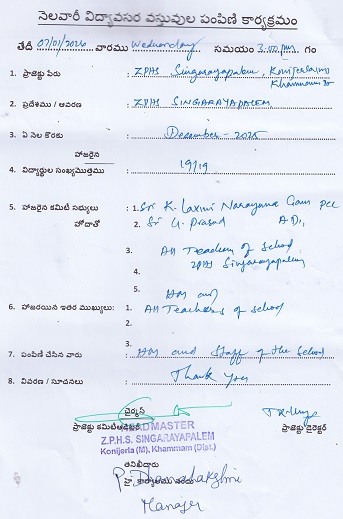 నెలవారీ విద్యావసర వస్తువుల పంపిణి కార్యక్రమం
తేదీ 07/01/2026 వారము Wednesday సమయం 3.00 pm గం
1. ప్రాజెక్టు పేరు : ZPHS Singarayapalem, Konijerla(m)
Khammam
2. ప్రదేశము / ఆవరణ : ZPHS SINGARAYAPALEM
3. ఏ నెల కొరకు : December - 2025
హాజరైన
4. విద్యార్థుల సంఖ్య/మొత్తము : 19/19
5. హాజరైన కమిటి సభ్యులు : 1. Sri K. Laxmi Narayana Garu PCC
హోదాతో 2. Sri G. Prasad A.D.,
3. All Teaching of School
ZPHS Singarayapalem
4.
5. HM and
6. హాజరయిన ఇతర ముఖ్యులు: 1. All Teachers of school
2.
3.
7. పంపిణీ చేసిన వారు : HM and Staff of the School
8. వివరణ / సూచనలు : Thank you
చైర్మన్
ప్రాజెక్టు కమిటీ ప్రాజెక్టు డైరెక్టర్
HEADMASTER
Z.P.H.S. SINGARAYAPALEM
Konijerla (M), Khammam (Dist.)
P. Dhanalakshmi
Manager